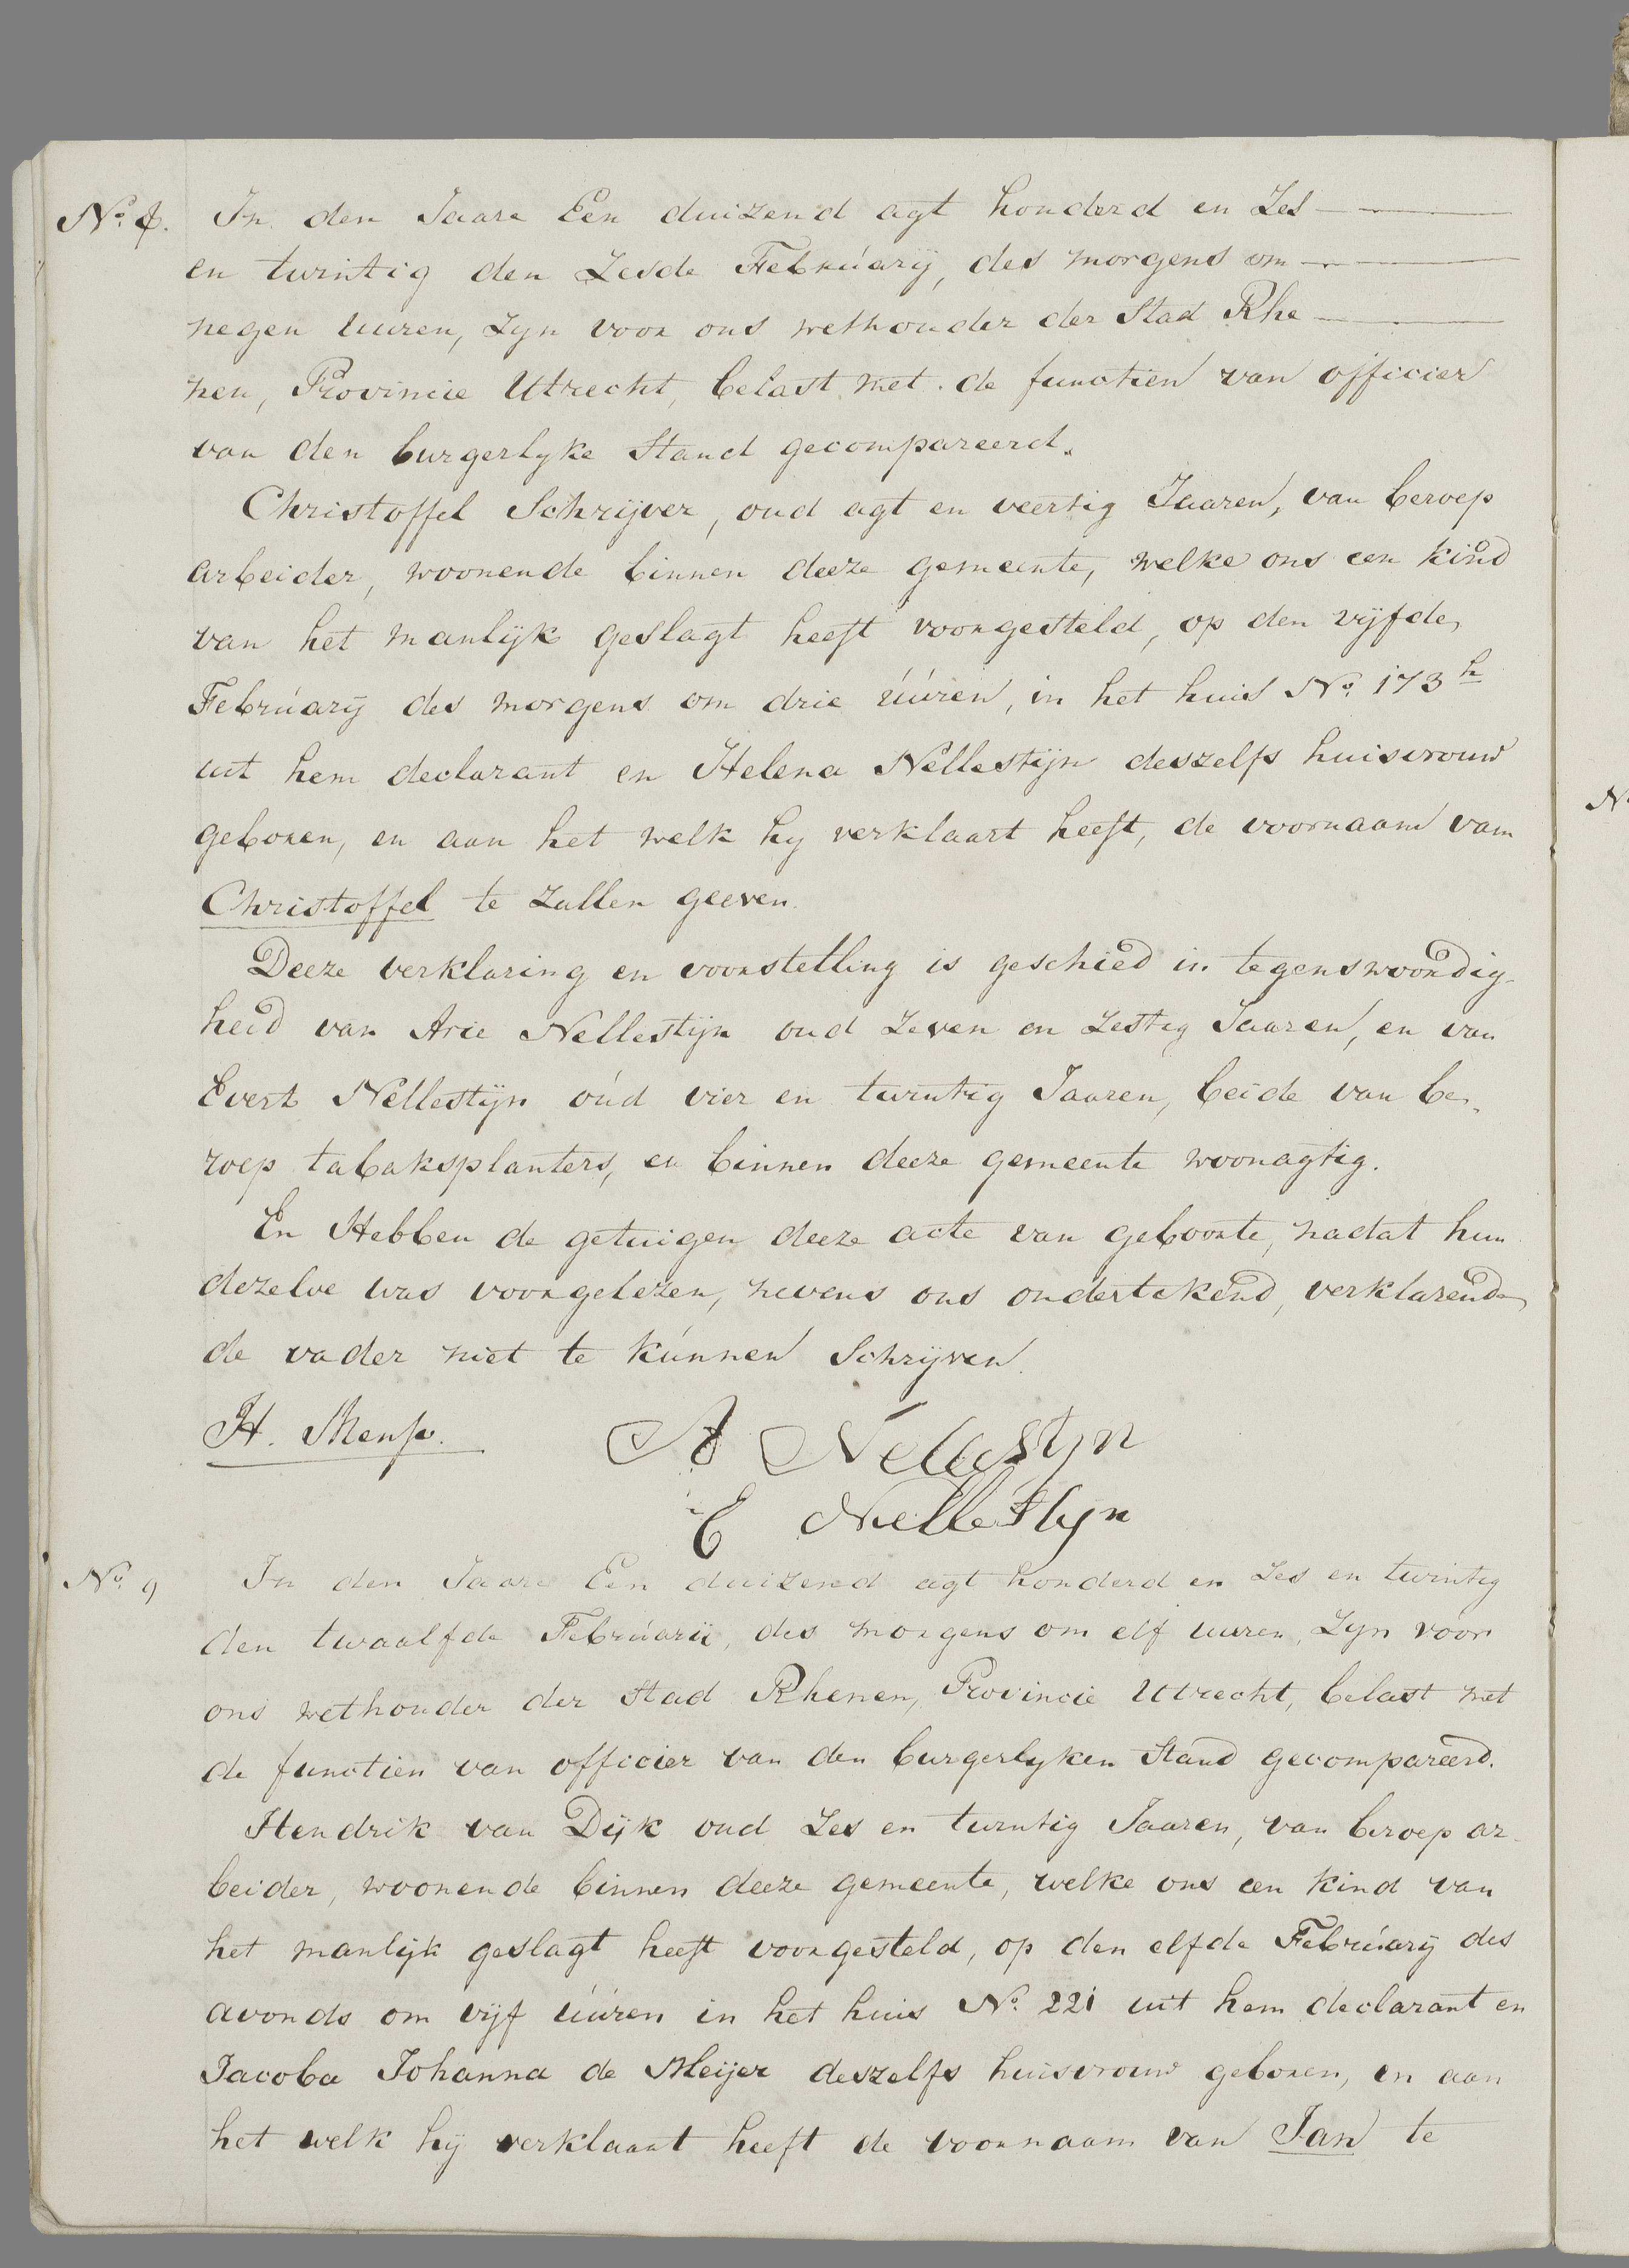 No. 8. In den Jaare Een duizend agt honderd en Zes
en twintig den Zesde Februarij, des morgens om
negen uuren, Zyn voor ons wethouder der Stad Rhe
nen, Provincie Utrecht, belast met de functien van officier
van den burgerlyke Stand gecompareerd.
Christoffel Schrijver, oud agt en veertig Jaaren, van beroep
arbeider, woonende binnen deeze gemeente, welke ons een kind
van het manlijk geslagt heeft voorgesteld, op den vijfde,
Februarij des morgens om drie uuren, in het huis No. 173 h
uit hem declarant en Helena Nellestijn deszelfs huisvrouw
geboren, en aan het welk hy verklaart heeft, de voornaam van
Christoffel te Zullen geeven.
Deeze verklaring en voorstelling is geschied in tegenswoordig-
heid van Arie Nellestijn oud Zeven en Zestig Jaaren, en van
Evert Nellestijn oud vier en twintig Jaaren, beide van be-
roep tabaksplanters, en binnen deeze gemeente woonagtig.
En Hebben de getuigen deeze acte van geboorte, nadat hun
dezelve was voorgelezen, nevens ons ondertekend, verklarende
de vader niet te kunnen Schrijven.
H. Menso.
A Nellestyn
E Nellestyn
No. 9 In den Jaare Een duizend agt honderd en Zes en twintig
den twaalfde Februarij, des morgens om elf uuren, Zyn voor
ons wethouder der Stad Rhenen, Provincie Utrecht, belast met
de functien van officier van den burgerlyken Stand gecompareerd.
Hendrik van Dijk oud Zes en twintig Jaaren, van beroep ar-
beider, woonende binnen deeze gemeente, welke ons een kind van
het manlijk geslagt heeft voorgesteld, op den elfde Februarij des
avonds om vijf uuren in het huis No. 221 uit hem declarant en
Jacoba Johanna de Meijer deszelfs huisvrouw geboren, en aan
het welk hij verklaart heeft de voornaam van Jan te